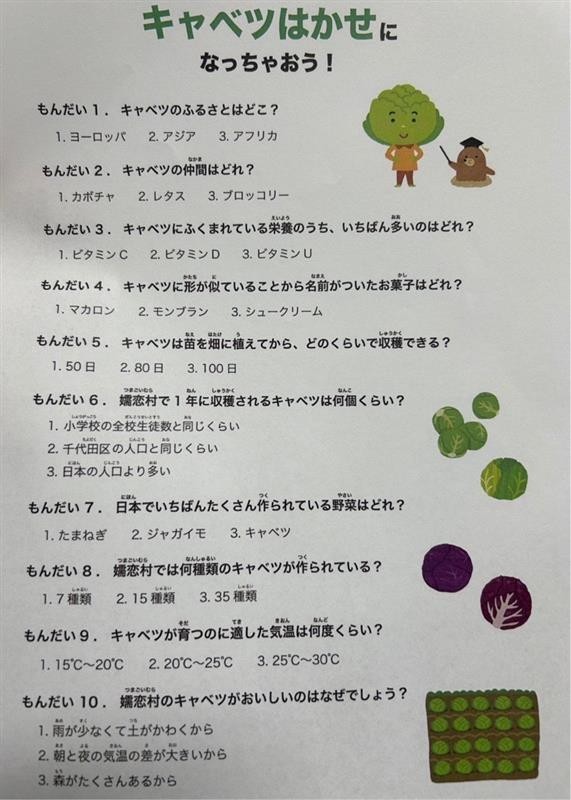 キャベツはかせに
なっちゃおう！
もんだい１．キャベツのふるさとはどこ？
1. ヨーロッパ　2. アジア　3. アフリカ
もんだい２．キャベツの仲間はどれ？
1. カボチャ　2. レタス　3. ブロッコリー
もんだい３．キャベツにふくまれている栄養のうち、いちばん多いのはどれ？
1. ビタミンC　2. ビタミンD　3. ビタミンU
もんだい４．キャベツに形が似ていることから名前がついたお菓子はどれ？
1. マカロン　2. モンブラン　3. シュークリーム
もんだい５．キャベツは苗を畑に植えてから、どのくらいで収穫できる？
1. 50日　2. 80日　3. 100日
もんだい６．嬬恋村で１年に収穫されるキャベツは何個くらい？
1. 小学校の全校生徒数と同じくらい
2. 千代田区の人口と同じくらい
3. 日本の人口より多い
もんだい７．日本でいちばんたくさん作られている野菜はどれ？
1. たまねぎ　2. ジャガイモ　3. キャベツ
もんだい８．嬬恋村では何種類のキャベツが作られている？
1. 7種類　2. 15種類　3. 35種類
もんだい９．キャベツが育つのに適した気温は何度くらい？
1. 15℃〜20℃　2. 20℃〜25℃　3. 25℃〜30℃
もんだい10．嬬恋村のキャベツがおいしいのはなぜでしょう？
1. 雨が少なくて土がかわくから
2. 朝と夜の気温の差が大きいから
3. 森がたくさんあるから